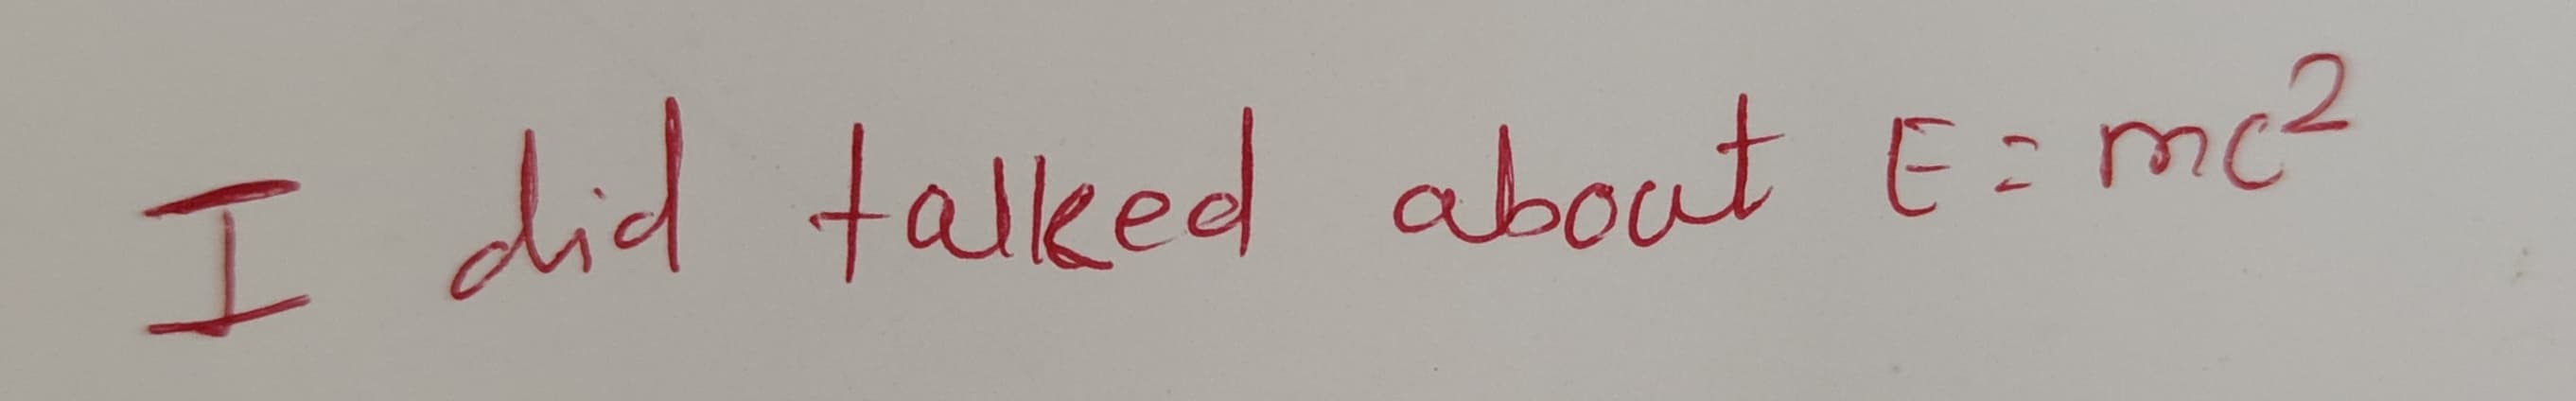 I did talked about E = mc²